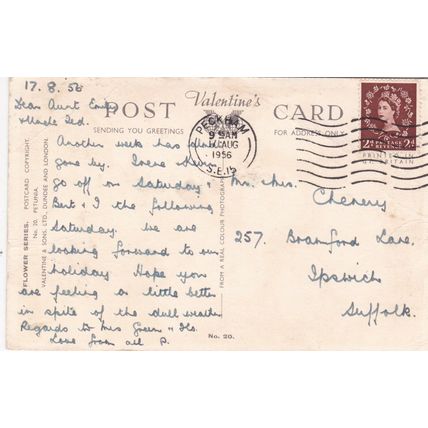 17.8.56
Dear Aunt Emily
& Uncle Ted.
POST CARD
Valentine's
SENDING YOU GREETINGS
FOR ADDRESS ONLY
Another week has
gone by. Irene
go off on Saturday &
Bert & I the following
Saturday. we are
looking forward to our
holiday. Hope you
are feeling a little better
in spite of the dull weather
Regards to Mrs Green &
Love from all P.
PECKHAM
9 30 AM
AUG
1956
S.E.15
POSTAGE REVENUE
2D 2D
PRINTED IN
GT. BRITAIN
Mr. & Mrs. Chenery
257. Bramford Lane.
Ipswich
Suffolk.
FLOWER SERIES. POSTCARD COPYRIGHT.
No. 20. PETUNIA.
VALENTINE & SONS LTD., DUNDEE AND LONDON.
FROM A REAL COLOUR PHOTOGRAPH
No. 20.